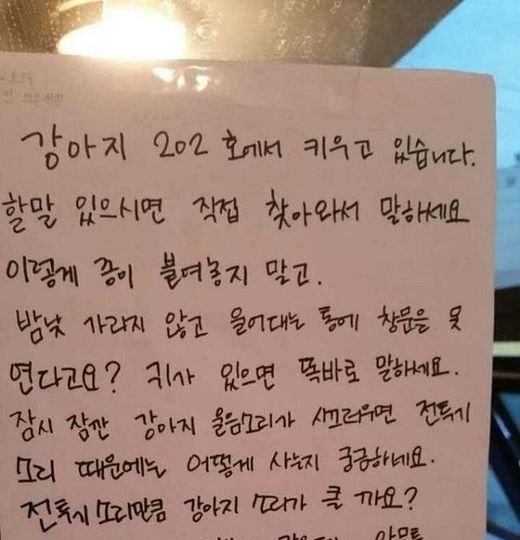 강아지 202 호에서 키우고 있습니다.
할말 있으시면 직접 찾아와서 말하세요
이렇게 종이 붙여놓지 말고.
밤낮 가라지 않고 울어대는 통에 창문을 못
연다고요? 귀가 있으면 똑바로 말하세요.
잠시 잠깐 강아지 울음소리가 시끄러우면 전투기
소리 때문에는 어떻게 사는지 궁금하네요.
전투기 소리만큼 강아지 소리가 클 까요?